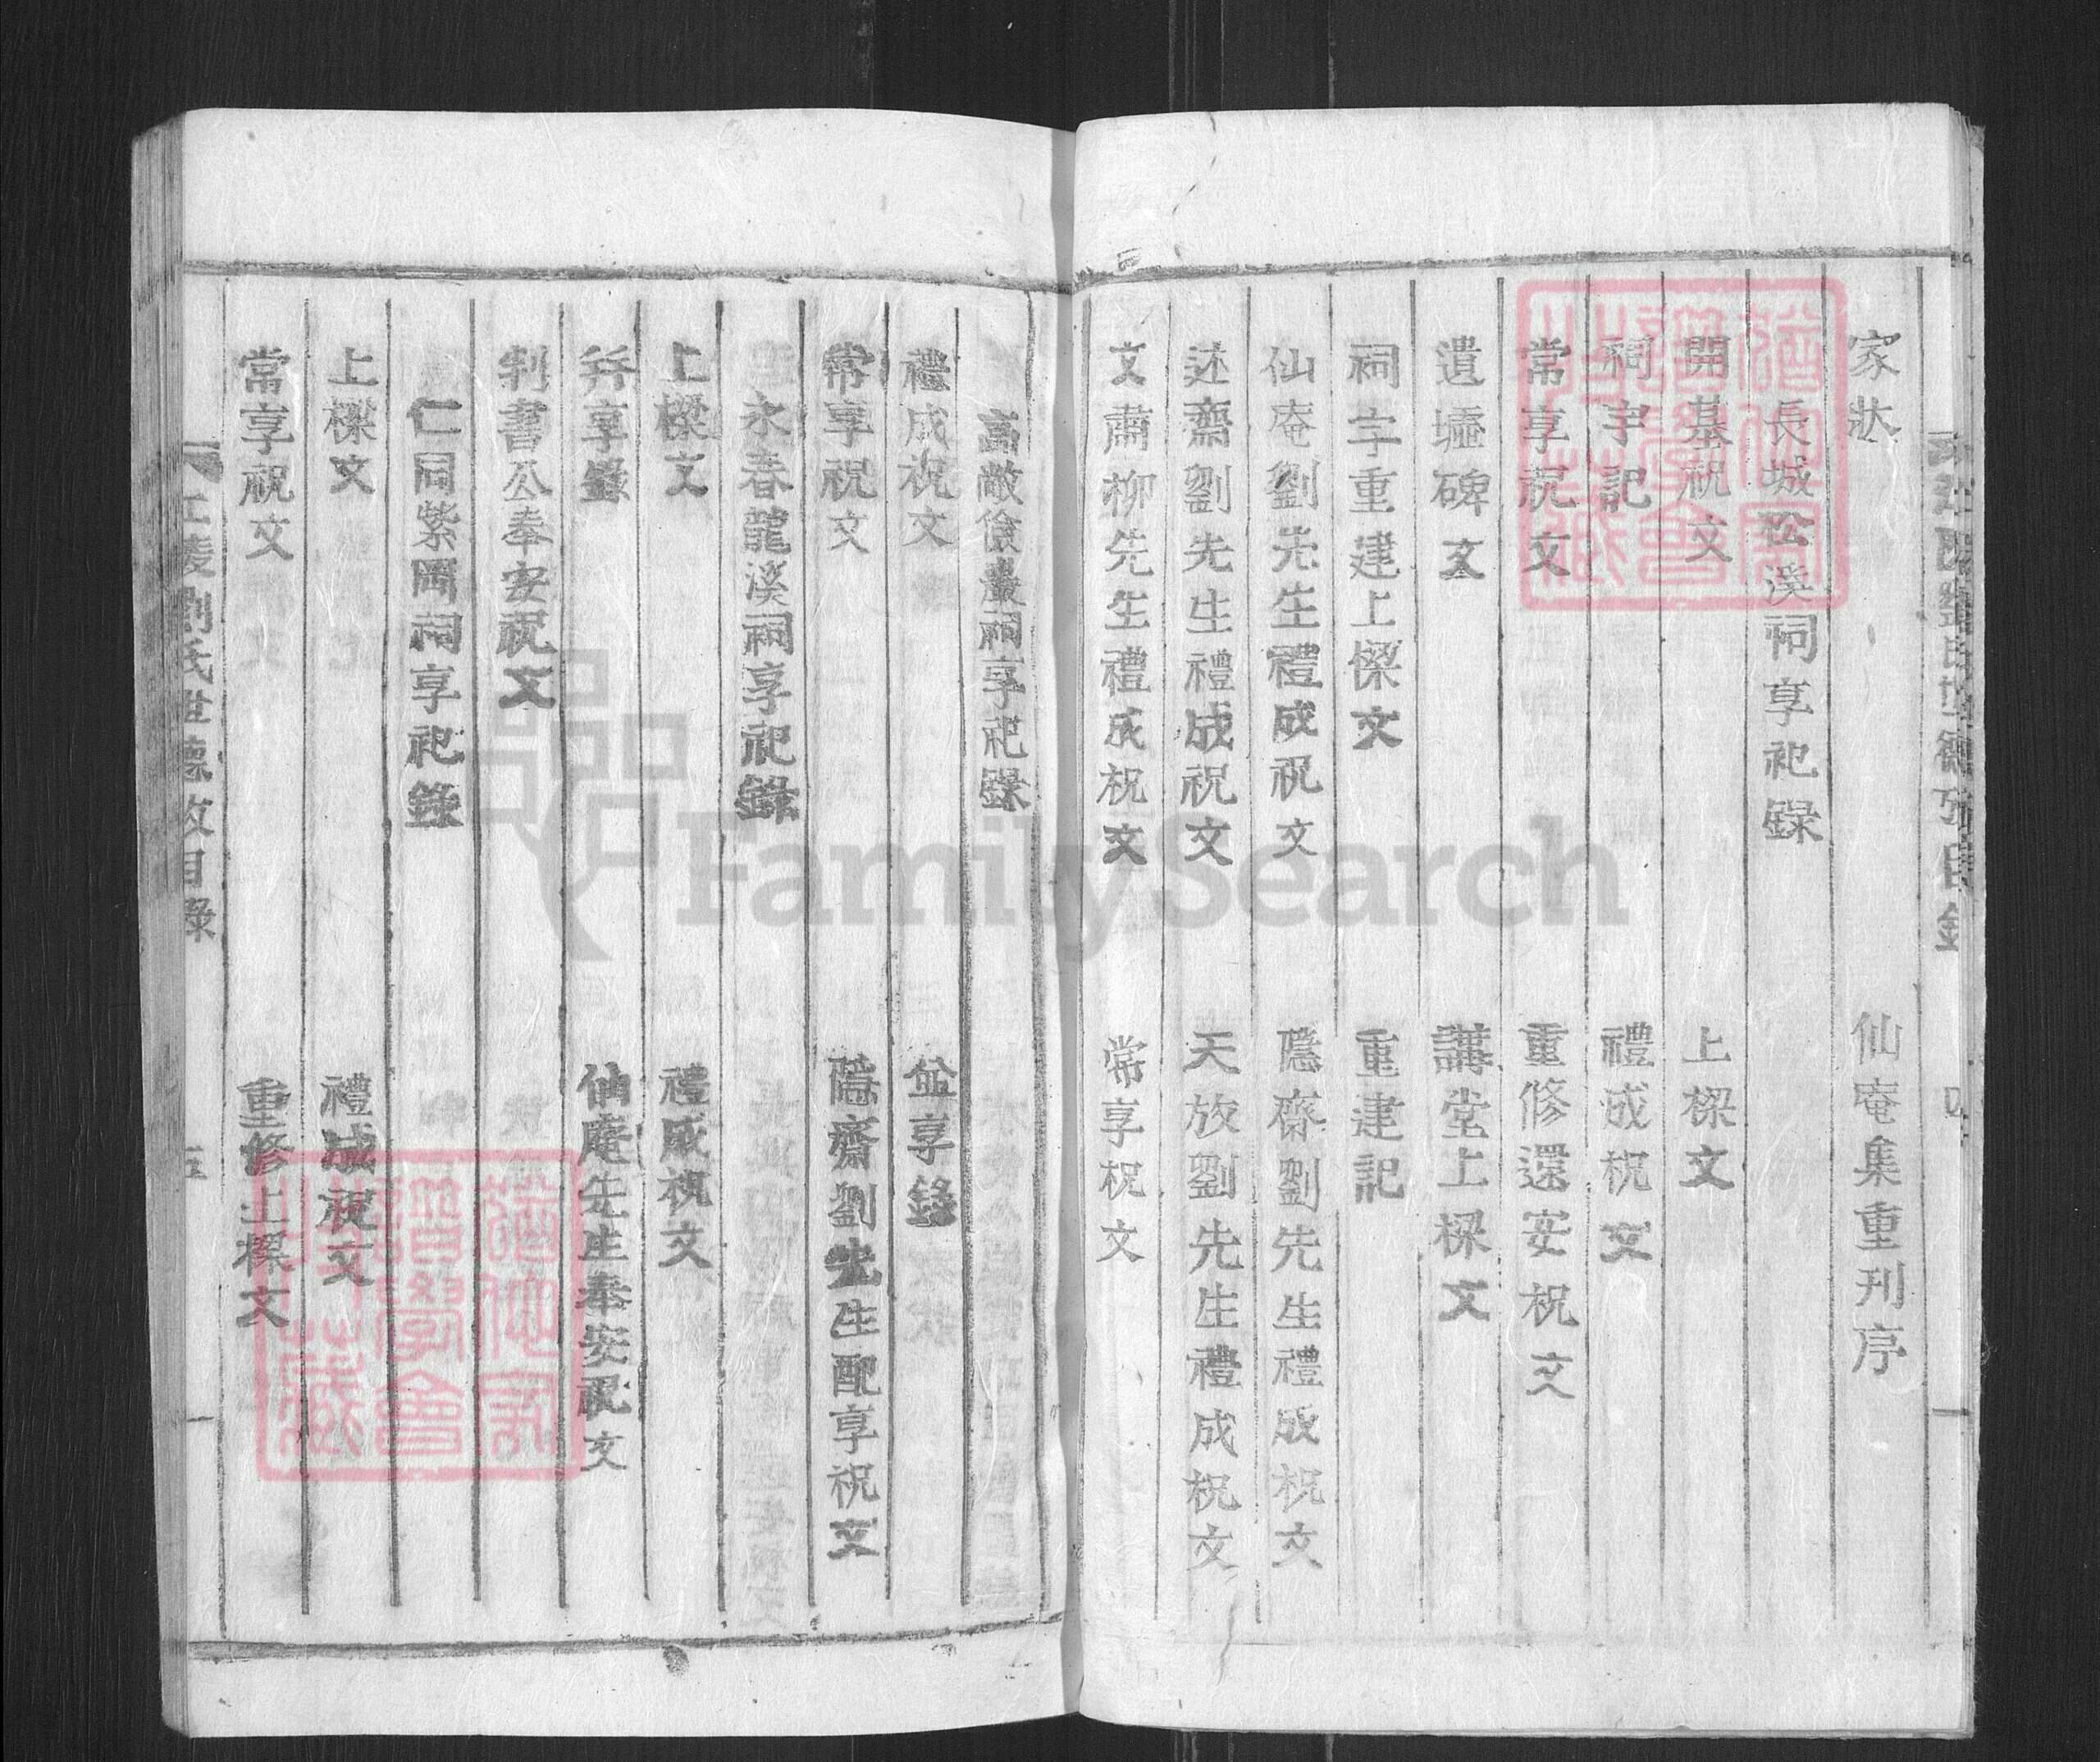 家狀　仙庵集重刋序
長城松溪祠享祀錄
開基祝文　上樑文
祠宇記　禮成祝文
常享祝文　重修還安祝文
遺墟碑文　講堂上樑文
祠宇重建上樑文　重建記
仙庵劉先生禮成祝文　隱齋劉先生禮成祝文
述齋劉先生禮成祝文　天放劉先生禮成祝文
文肅柳先生禮成祝文　常享祝文
高敞儉巖祠享祀錄
禮成祝文　並享錄
常享祝文　隱齋劉先生配享祝文
永春龍溪祠享祀錄
上樑文　禮成祝文
幷享錄　仙庵先生奉安祝文
判書公奉安祝文
仁同紫岡祠享祀錄
上樑文　禮成祝文
常享祝文　重修上樑文
江陵劉氏世德攷目錄　五
FamilySearch